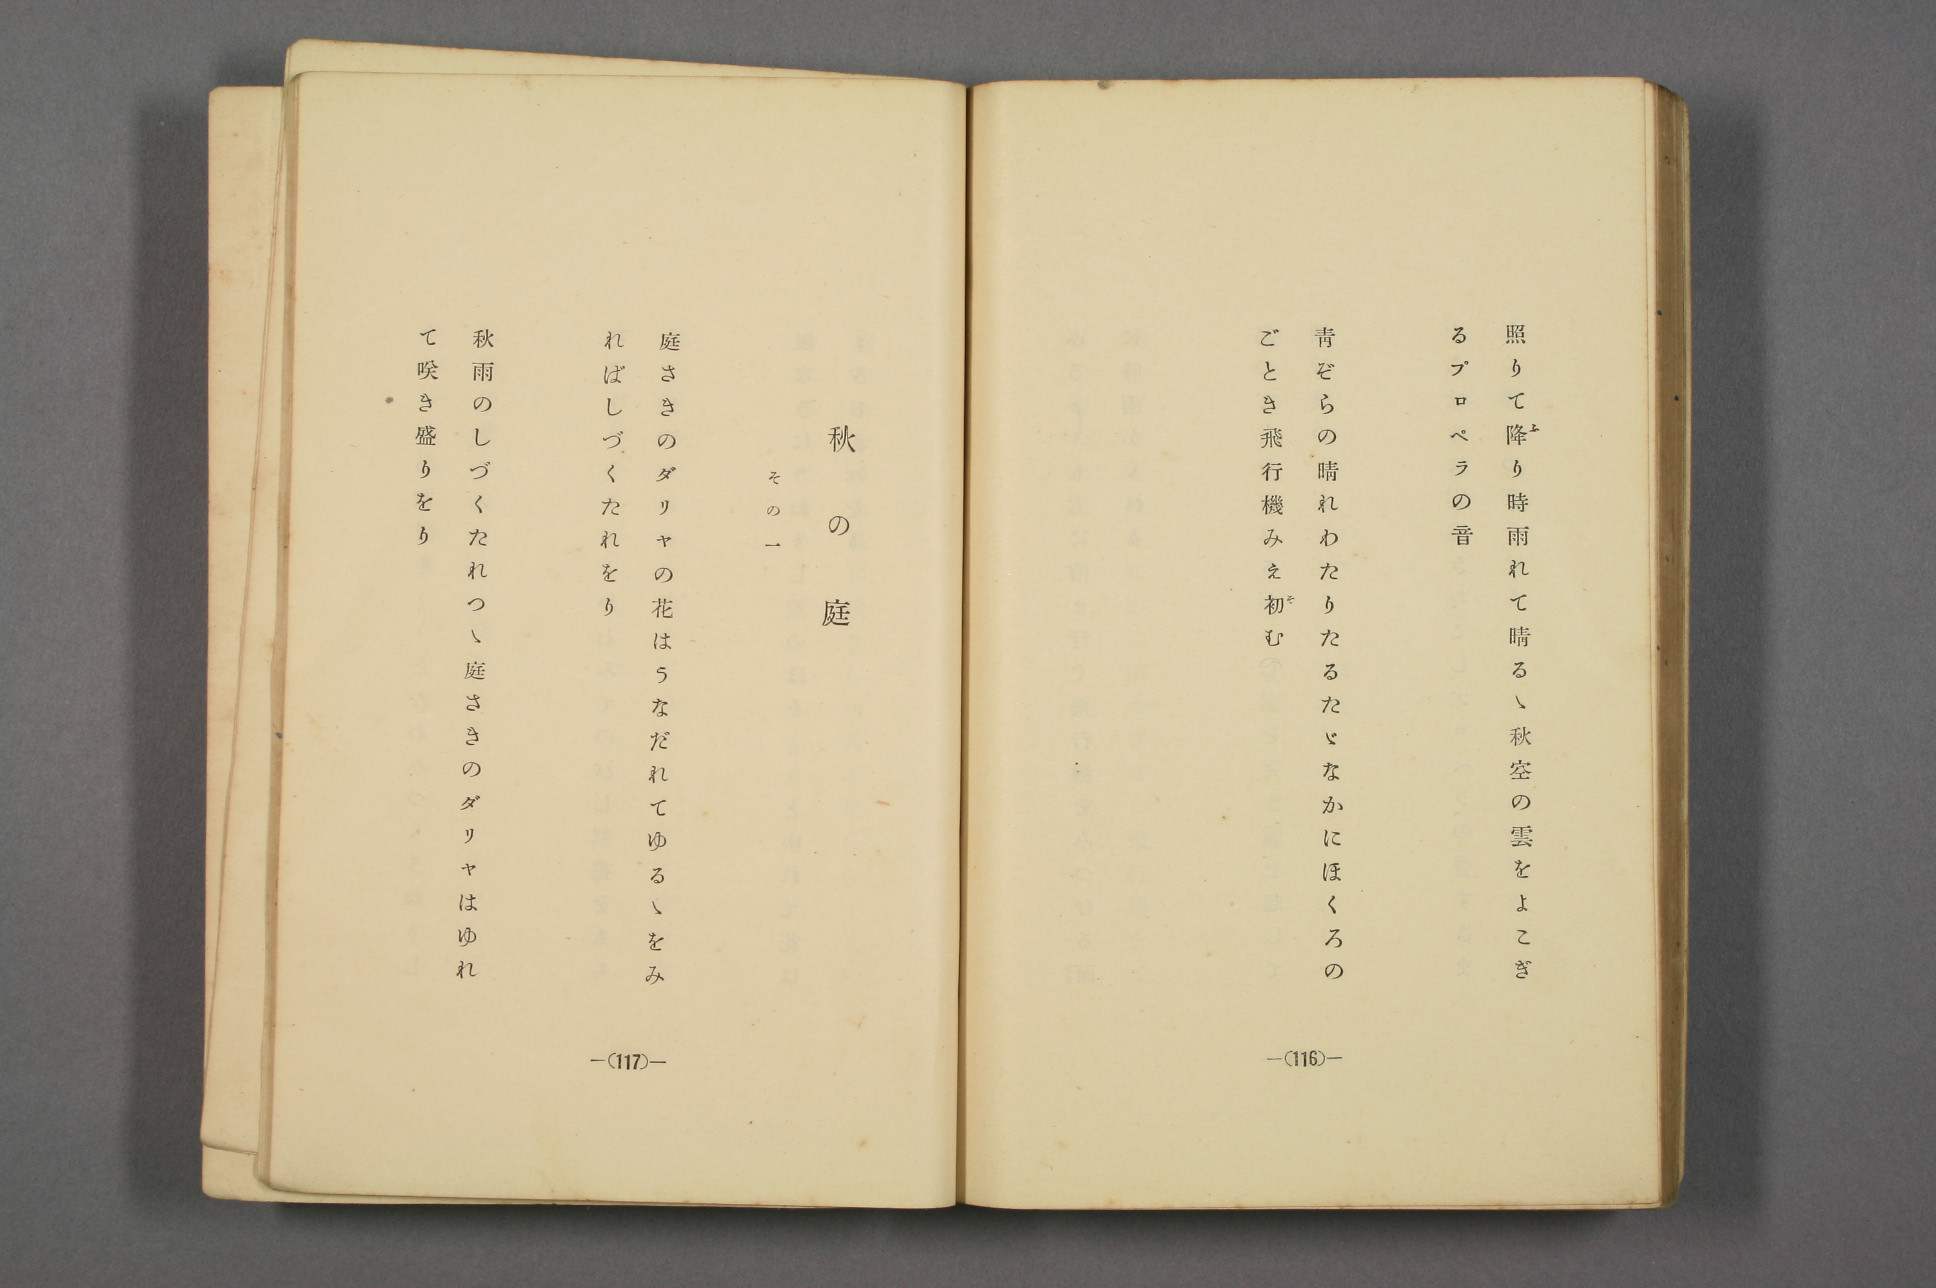 照りて降り時雨れて晴るゝ秋空の雲をよこぎ
るプロペラの音
青ぞらの晴れわたりたるたゞなかにほくろの
ごとき飛行機みえ初む
—(116)—
秋の庭
その一
庭さきのダリヤの花はうなだれてゆるゝをみ
ればしづくたれをり
秋雨のしづくたれつゝ庭さきのダリヤはゆれ
て咲き盛りをり
—(117)—